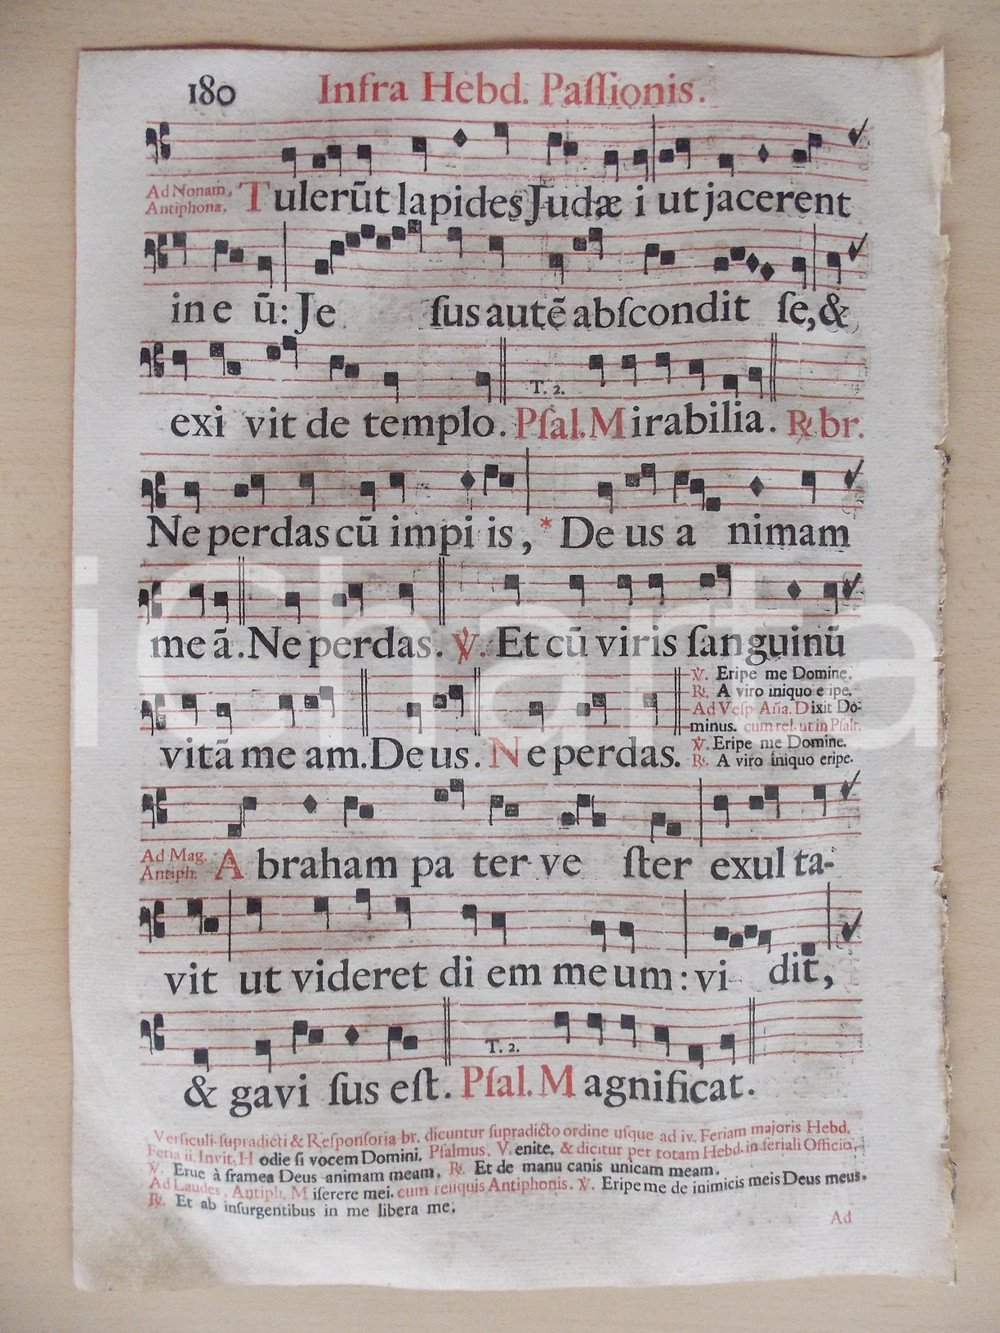 180 Infra Hebd. Paſſionis.
Ad Nonam, Antiphona. Tulerūt lapides Judæ i ut jacerent
in e ū: Je ſus autē abſcondit ſe, &
exi vit de templo. T. 2. Pſal. Mirabilia. ℟ br.
Ne perdas cū impi is, * De us a nimam
me ā. Ne perdas. ℣. Et cū viris ſanguinū
vitā me am. De us. Ne perdas.
℣. Eripe me Domine.
℟. A viro iniquo e ipe.
Ad Veſp Aña. Dixit Do-
minus. cum rel. ut in Pſalt.
℣. Eripe me Domine.
℟. A viro iniquo eripe.
Ad Mag. Antiph. Abraham pa ter ve ſter exul ta-
vit ut videret di em me um: vi dit,
& gavi ſus eſt. T. 2. Pſal. Magnificat.
Verſiculi ſupradicti & Reſponſoria br. dicuntur ſupradicto ordine uſque ad iv. Feriam majoris Hebd.
Feria ii. Invit. Hodie ſi vocem Domini, Pſalmus. Venite, & dicitur per totam Hebd. in feriali Officio,
℣. Erue à framea Deus animam meam, ℟. Et de manu canis unicam meam.
Ad Laudes, Antiph. Miſerere mei. cum reliquis Antiphonis. ℣. Eripe me de inimicis meis Deus meus.
℟. Et ab inſurgentibus in me libera me.
Ad
iCharta